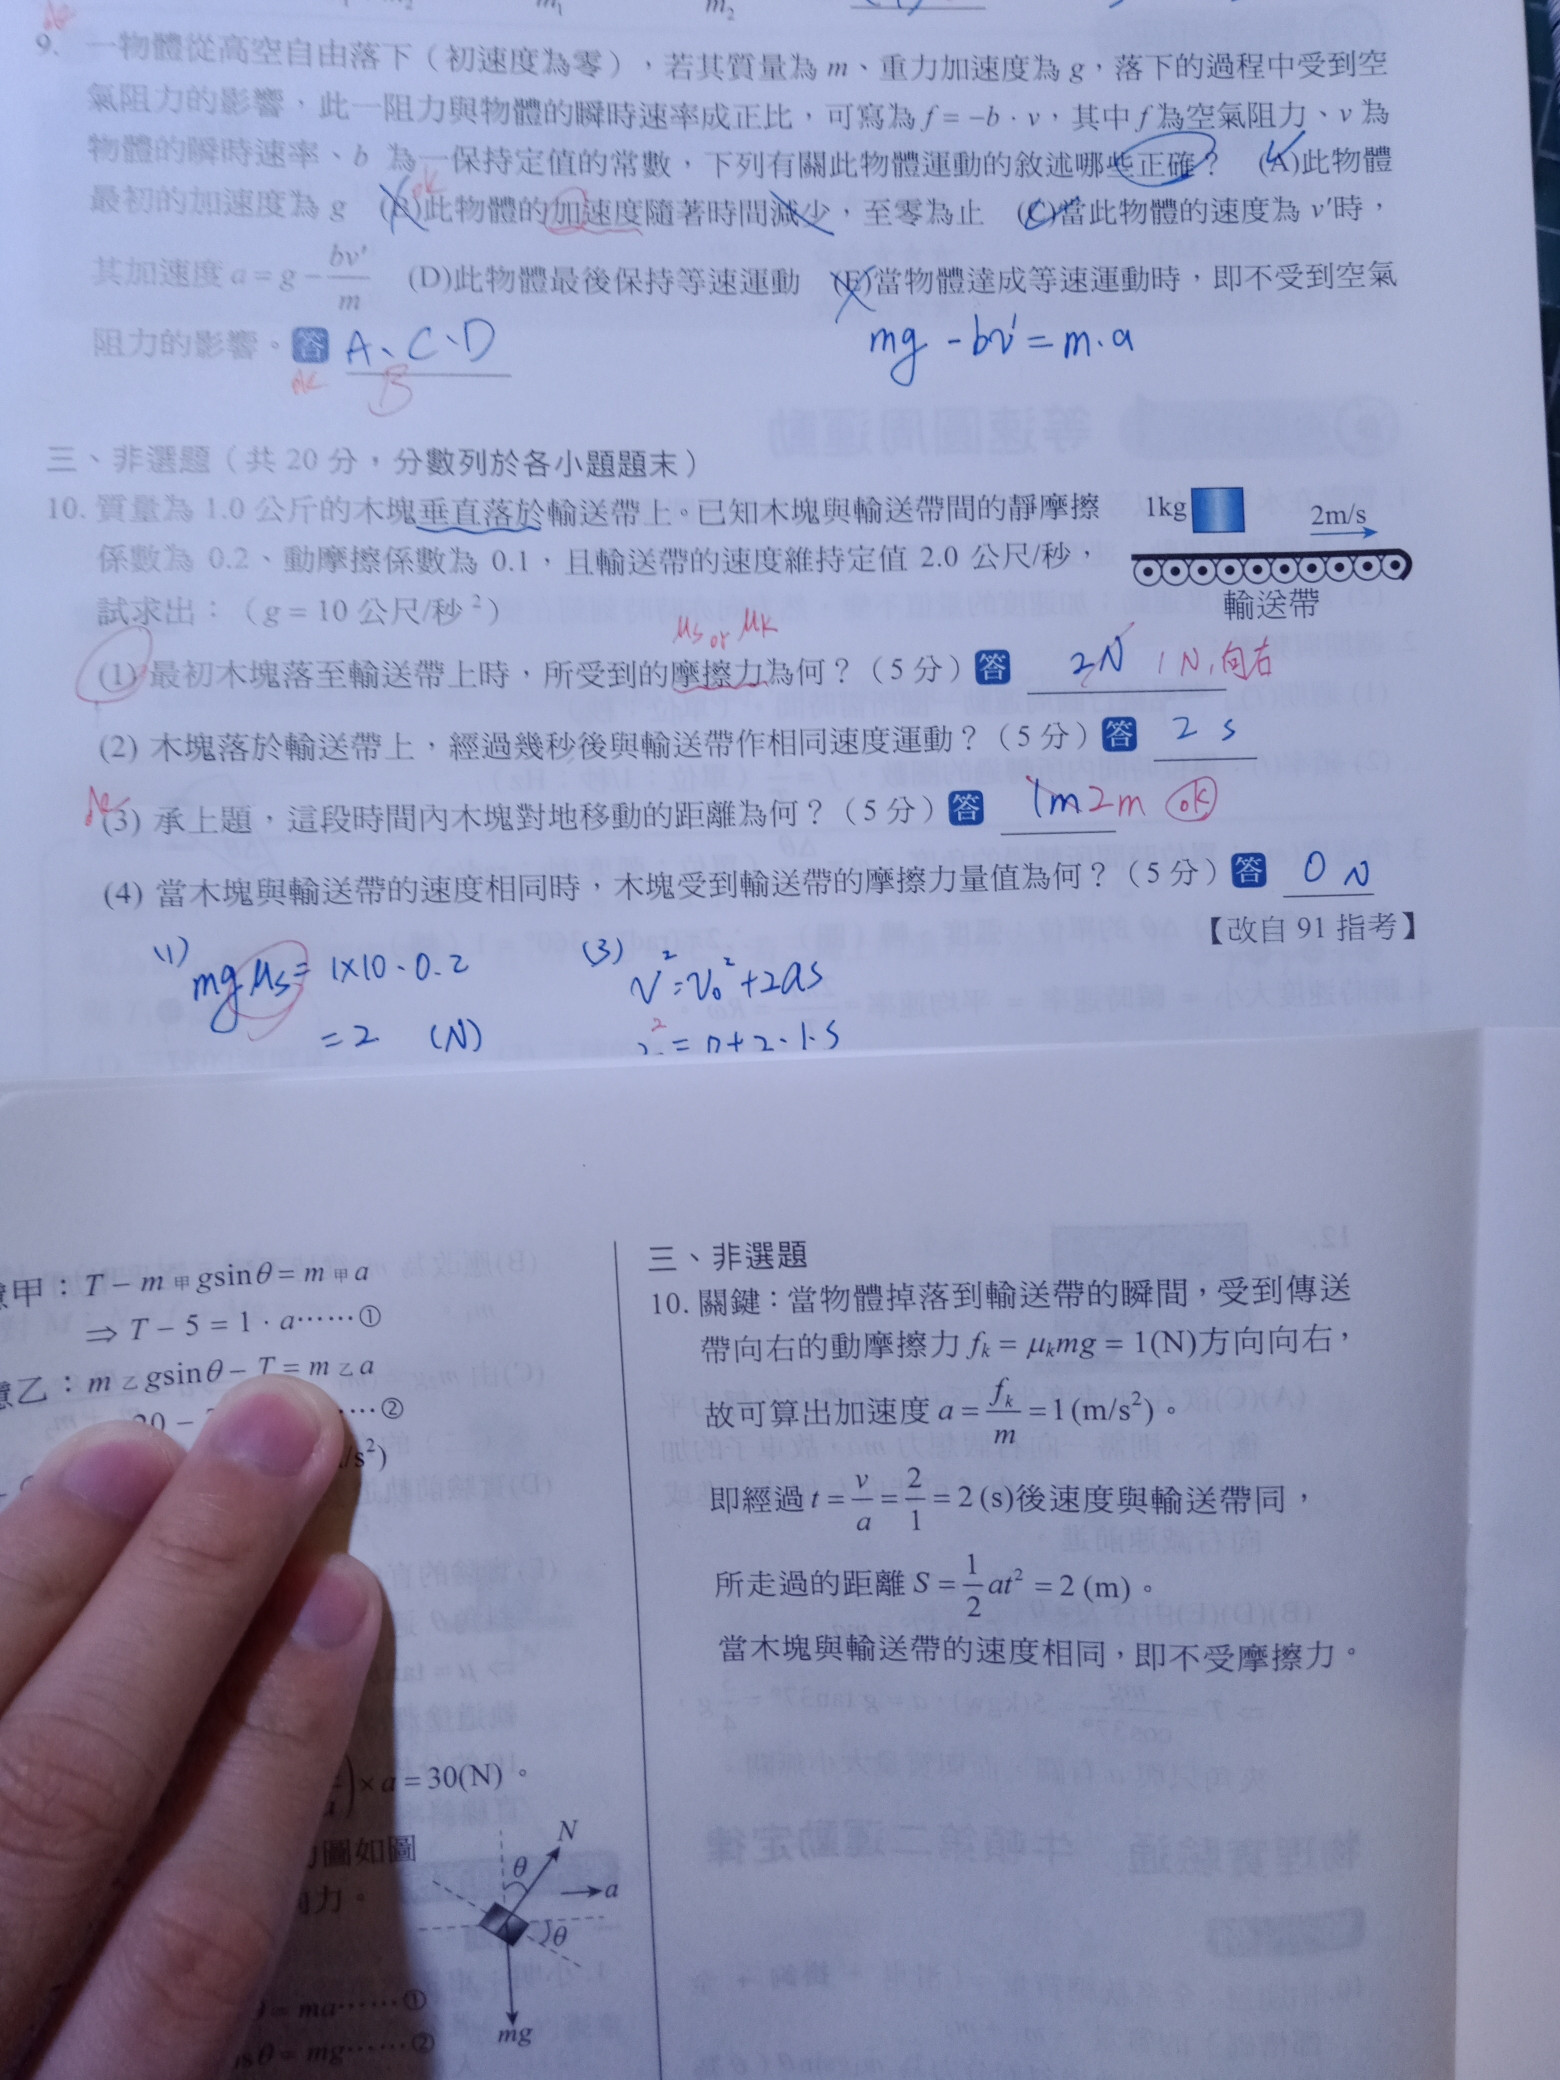 m₂
9. 一物體從高空自由落下（初速度為零），若其質量為 m、重力加速度為 g，落下的過程中受到空
氣阻力的影響，此一阻力與物體的瞬時速率成正比，可寫為 f = −b · v，其中 f 為空氣阻力、v 為
物體的瞬時速率、b 為一保持定值的常數，下列有關此物體運動的敘述哪些正確？ (A)此物體
最初的加速度為 g (B)此物體的加速度隨著時間減少，至零為止 (C)當此物體的速度為 v′時，
其加速度 a = g − bv′/m (D)此物體最後保持等速運動 (E)當物體達成等速運動時，即不受到空氣
阻力的影響。答 A、C、D
B
mg - bv' = m.a
三、非選題（共 20 分，分數列於各小題題末）
10. 質量為 1.0 公斤的木塊垂直落於輸送帶上。已知木塊與輸送帶間的靜摩擦
係數為 0.2、動摩擦係數為 0.1，且輸送帶的速度維持定值 2.0 公尺/秒，
試求出：（g = 10 公尺/秒²）
1kg
2m/s
輸送帶
μs or μk
(1) 最初木塊落至輸送帶上時，所受到的摩擦力為何？（5 分）答 2N 1N,向右
(2) 木塊落於輸送帶上，經過幾秒後與輸送帶作相同速度運動？（5 分）答 2 s
(3) 承上題，這段時間內木塊對地移動的距離為何？（5 分）答 1m 2m ok
(4) 當木塊與輸送帶的速度相同時，木塊受到輸送帶的摩擦力量值為何？（5 分）答 0 N
【改自 91 指考】
(1) mg μs = 1×10·0.2
= 2 (N)
(3) v² = v₀² + 2as
2² = 0+2·1·S
甲：T − m甲gsinθ = m甲a
⇒ T − 5 = 1 · a……①
乙：m乙gsinθ − T = m乙a
……②
× a = 30(N)。
圖如圖
力。
N
θ
a
θ
mg
= ma……①
θ = mg……②
三、非選題
10. 關鍵：當物體掉落到輸送帶的瞬間，受到傳送
帶向右的動摩擦力 fₖ = μₖmg = 1(N)方向向右，
故可算出加速度 a = fₖ/m = 1 (m/s²)。
即經過 t = v/a = 2/1 = 2 (s)後速度與輸送帶同，
所走過的距離 S = 1/2 at² = 2 (m)。
當木塊與輸送帶的速度相同，即不受摩擦力。